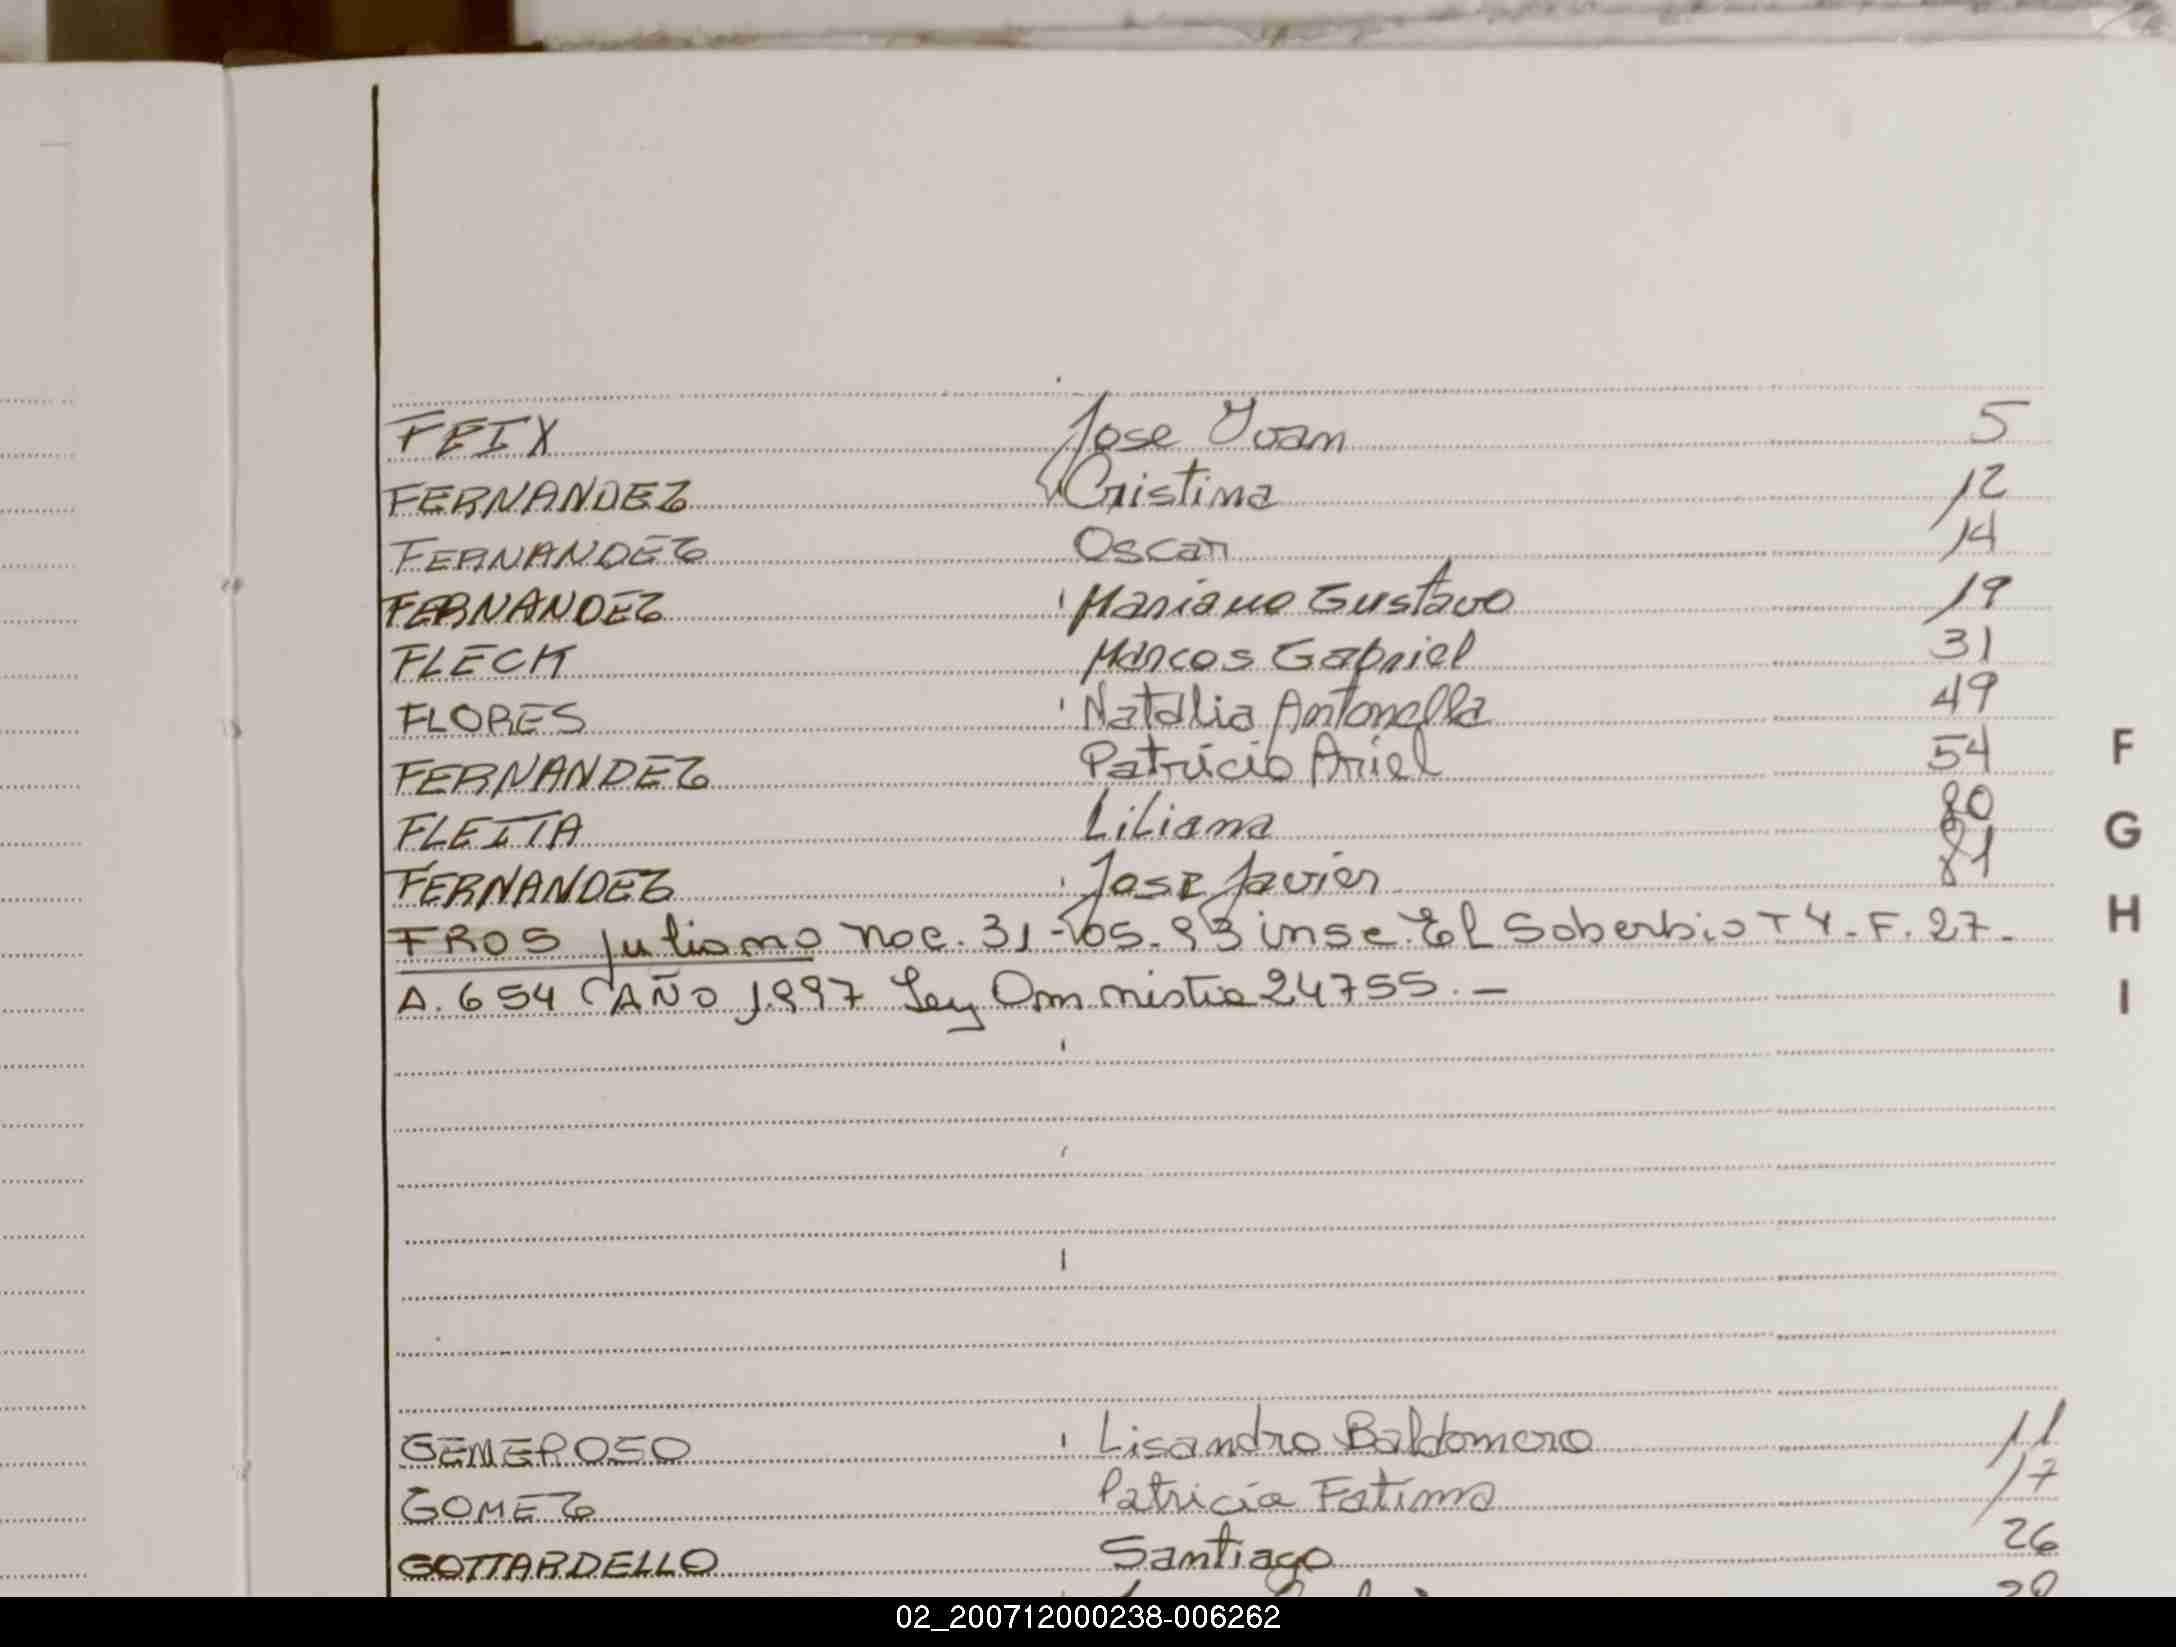 FEIX Jose Yvan 5
FERNANDEZ Cristina 12
FERNANDEZ Oscar 14
FERNANDEZ Mariano Gustavo 19
FLECK Marcos Gabriel 31
FLORES Natalia Antonella 49
FERNANDEZ Patricio Ariel 54
FLEITA Liliana 80
FERNANDEZ Jose Javier 81
FROS Juliano noc. 31-05-93 insc. El Soberbio T 4. F. 27-
A. 654 AÑO 1.997 Ley Omnistia 24755. -
F
G
H
I
GENEROSO Lisandro Baldomero 11
GOMEZ Patricia Fatima 17
GOTTARDELLO Santiago 26
02_200712000238-006262